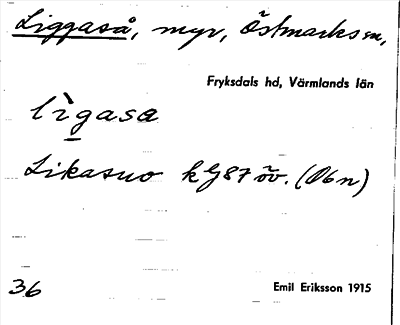 Liggaså, myr, Östmarks sn,
Fryksdals hd, Värmlands län
lìgasa
Likasuo kG87 öv. (Obn)
36
Emil Eriksson 1915